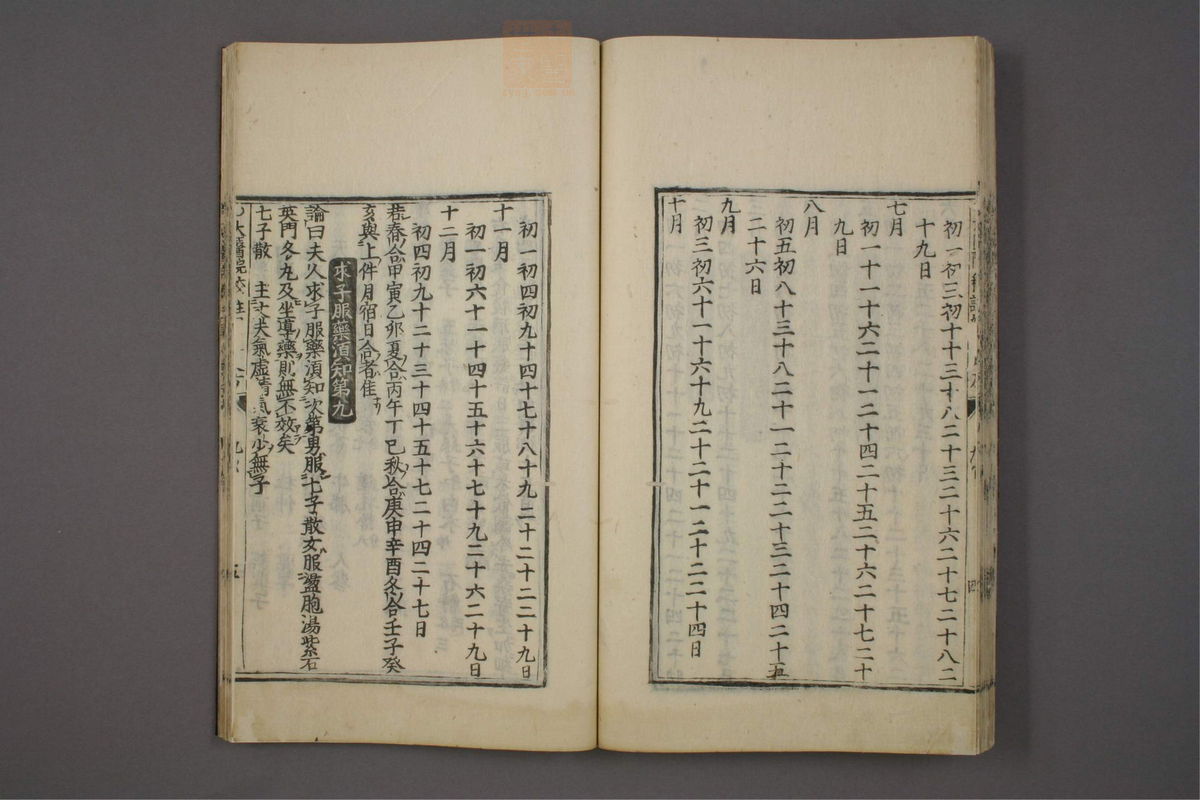 初一初三初十十三十八二十三二十六二十七二十八二
十九日
七月
初一十一十六二十一二十四二十五二十六二十七二十
九日
八月
初五初八十三十八二十一二十二二十三二十四二十五
二十六日
九月
初三初六十一十六十九二十二十一二十二二十四日
十月
初一初四初九十四十七十八十九二十二十二二十九日
十一月
初一初六十一十四十五十六十七十九二十六二十九日
十二月
初四初九十二十三十四十五十七二十四二十七日
若春合甲寅乙卯夏合丙午丁巳秋合庚申辛酉冬合壬子癸
亥與上件月宿日合者佳
求子服藥須知第九
論曰夫人求子服藥須知次第男服七子散女服盪胞湯紫石
英門冬丸及坐導藥則無不效矣
七子散 主丈夫氣虛精氣衰少無子
太醫院校註